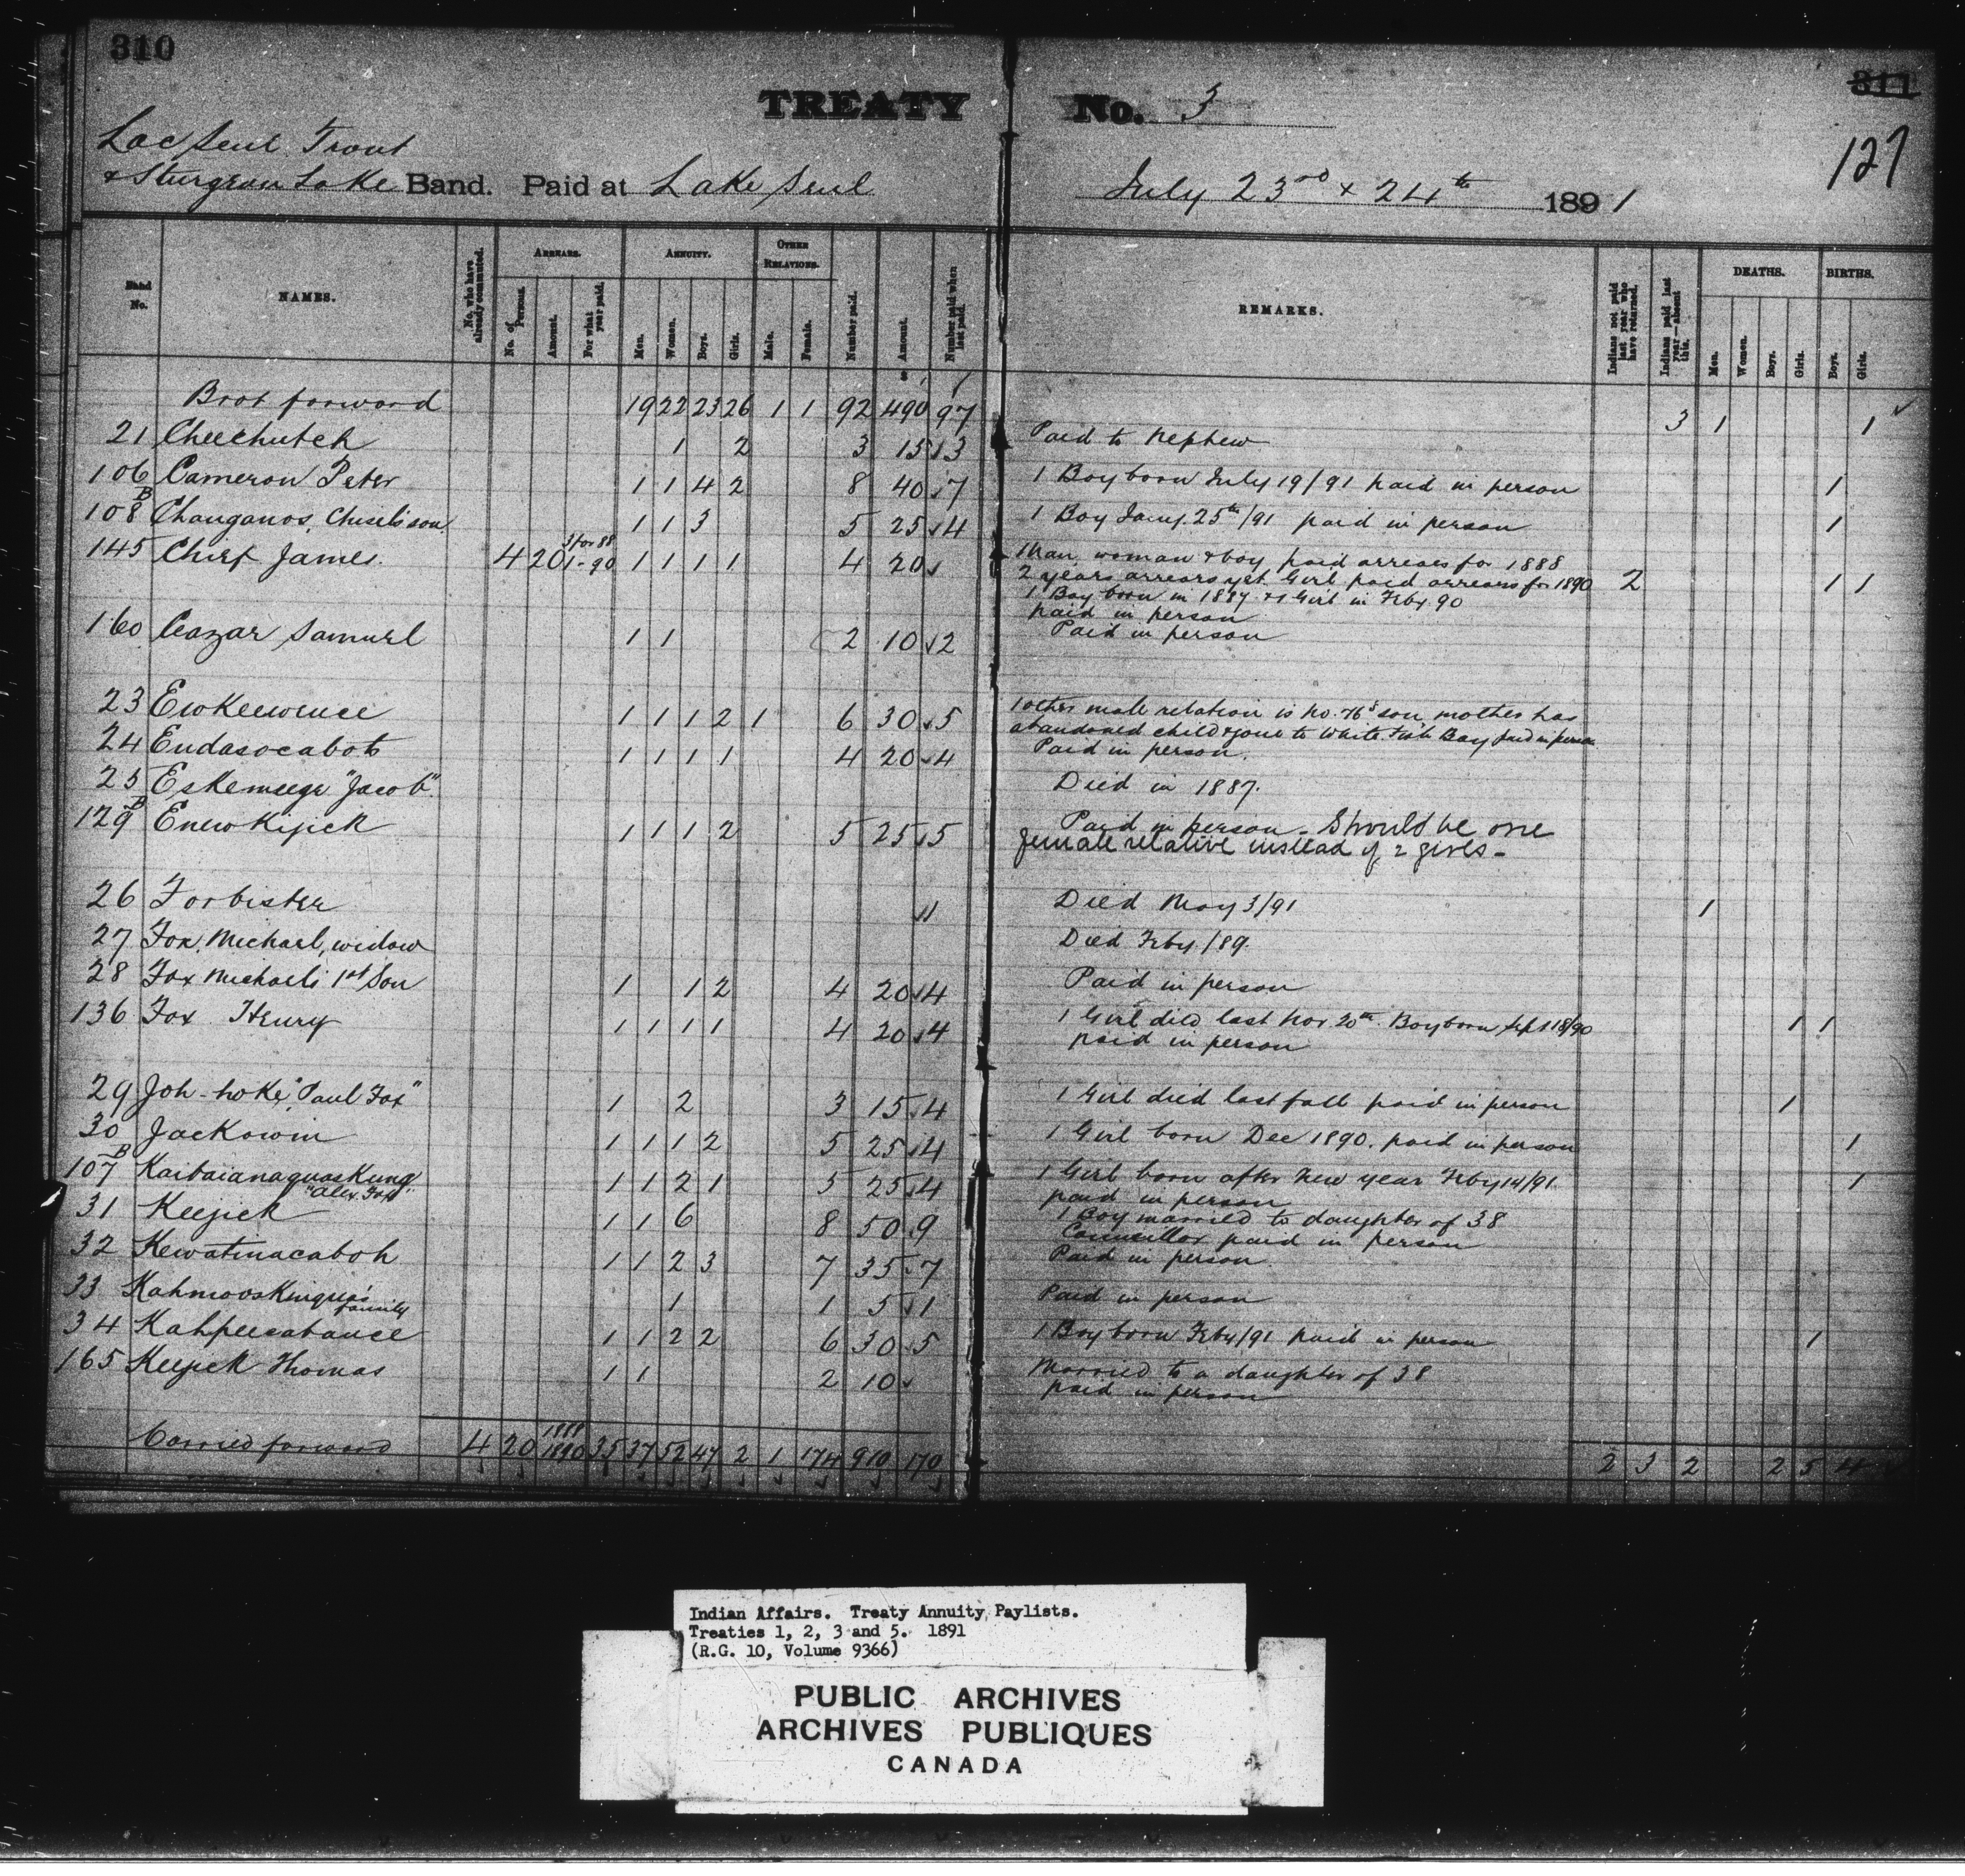 310
311
127
TREATY No. 3
Lac Seul Trout
& Sturgeon Lake Band. Paid at Lake Seul July 23rd & 24th 1891
Band No. NAMES. No. who have already commuted. ARREARS. No. of Persons. Amount. For what year paid. ANNUITY. Men. Women. Boys. Girls. OTHER RELATIONS. Male. Female. Number paid. Amount. Number paid when last paid. REMARKS. Indians not paid last year who have returned. Indians paid last year—absent this. DEATHS. Men. Women. Boys. Girls. BIRTHS. Boys. Girls.
Brot forward 19 22 23 26 1 1 92 490 97 3 1 1
21 Cheechutch 1 2 3 15 3 Paid to Nephew
106 Cameron Peter 1 1 4 2 8 40 7 1 Boy born July 19/91 paid in person 1
B
108 Changanos, 1 1 3 5 25 4 1 Boy Jany. 25th/91 paid in person 1
3 for 88
145 Chief James. 4 20 1-90 1 1 1 1 4 20 1 Man, woman & boy paid arrears for 1888
2 years arrears yet. Girl paid arrears for 1890 2 1 1
1 Boy born in 1887 & 1 Girl in Feby. 90
paid in person
160 Cazar Samuel 1 1 2 10 2 Paid in person
23 Ewkeewence 1 1 1 2 1 6 30 5 1 other male relation is No. 76's son, mother has
abandoned child & gone to White Fish Bay paid in person
24 Endasocabot 1 1 1 1 4 20 4 Paid in person.
25 Eskemeege "Jacob". Died in 1887.
B
129 Enewkijick 1 1 1 2 5 25 5 Paid in person - Should be one
female relative instead of 2 girls -
26 Forbister 1 Died May 3/91 1
27 Fox, Michael, widow Died Feby./89.
28 Fox Michael's 1st Son 1 1 2 4 20 4 Paid in person
136 Fox Henry 1 1 1 1 4 20 4 1 Girl died last Nov 20th. Boy born Sept 18/90 1 1
paid in person
29 Joh-hoke, "Paul Fox" 1 2 3 15 4 1 Girl died last fall paid in person 1
30 Jackowin 1 1 1 2 5 25 4 1 Girl born Dec 1890. paid in person 1
B
107 Kaibaianaquaskung 1 1 2 1 5 25 4 1 Girl born after New year Feby 14/91 1
"Alex. Fox". paid in person
31 Keejick 1 1 6 8 50 9 1 Boy married to daughter of 38
Councillor paid in person
32 Kewatinacaboh 1 1 2 3 7 35 7 Paid in person.
33 Kahmooskinqua's 1 1 5 1 Paid in person
family
34 Kahpeesabance 1 1 2 2 6 30 5 1 Boy born Feby/91 paid in person 1
165 Keejick Thomas 1 1 2 10 Married to a daughter of 38
paid in person
1888
Carried forward 4 20 1890 35 37 52 47 2 1 174 910 170 2 3 2 2 5 4
Indian Affairs. Treaty Annuity Paylists.
Treaties 1, 2, 3 and 5. 1891
(R.G. 10, Volume 9366)
PUBLIC ARCHIVES
ARCHIVES PUBLIQUES
CANADA